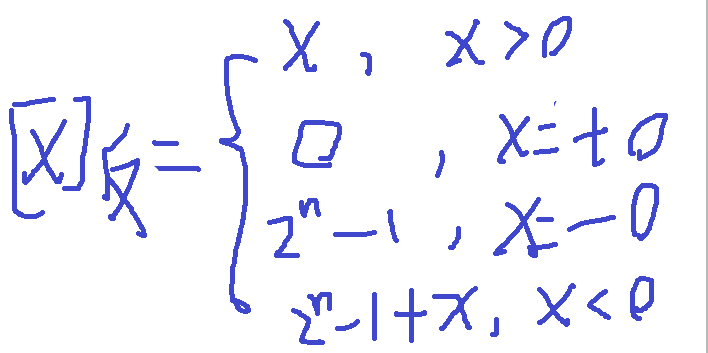 [X]反 = { X , x > 0
0 , x = +0
2^n - 1 , x = -0
2^n - 1 + x, x < 0